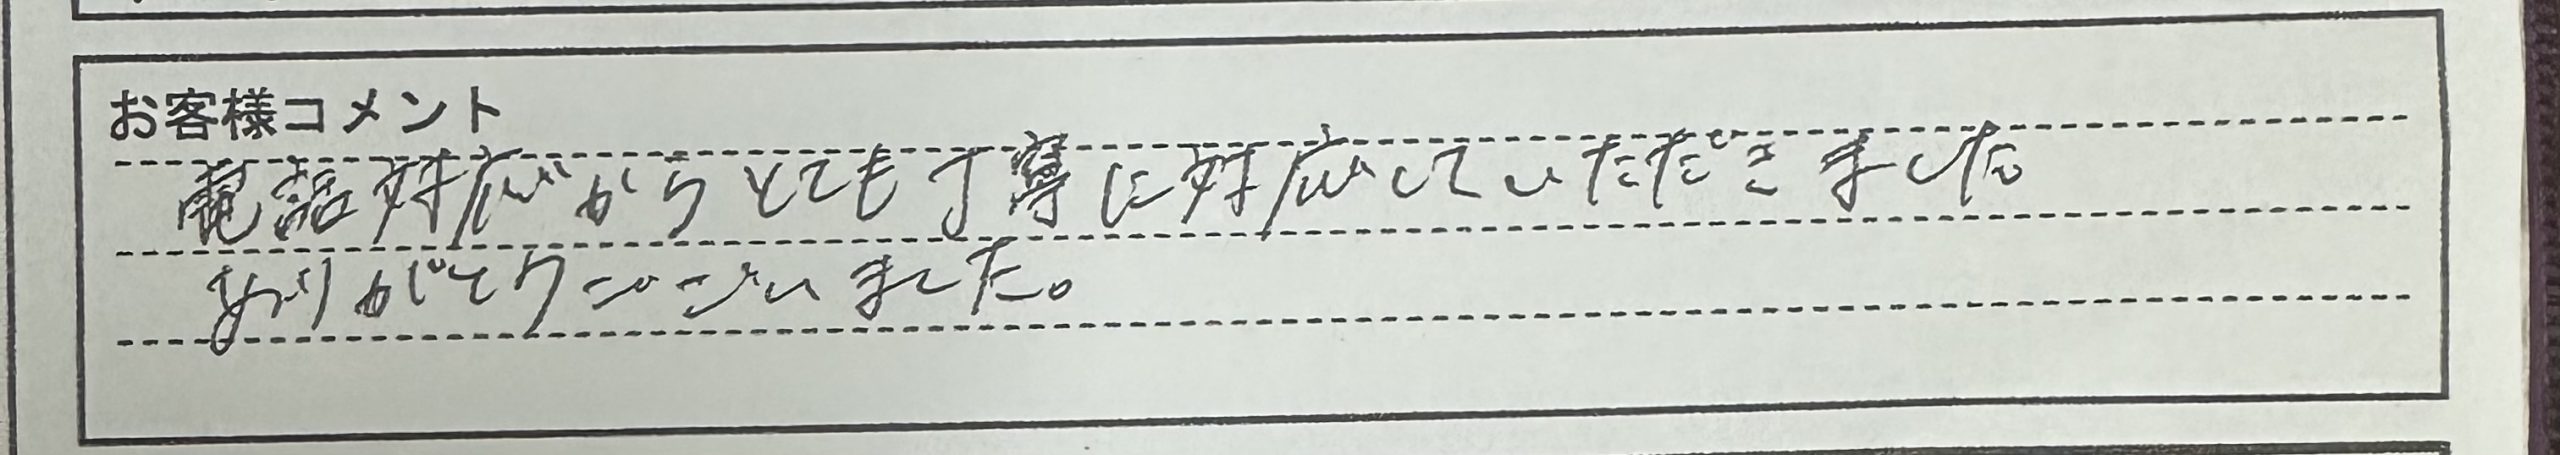 お客様コメント
電話対応からとても丁寧に対応していただきました。
ありがとうございました。